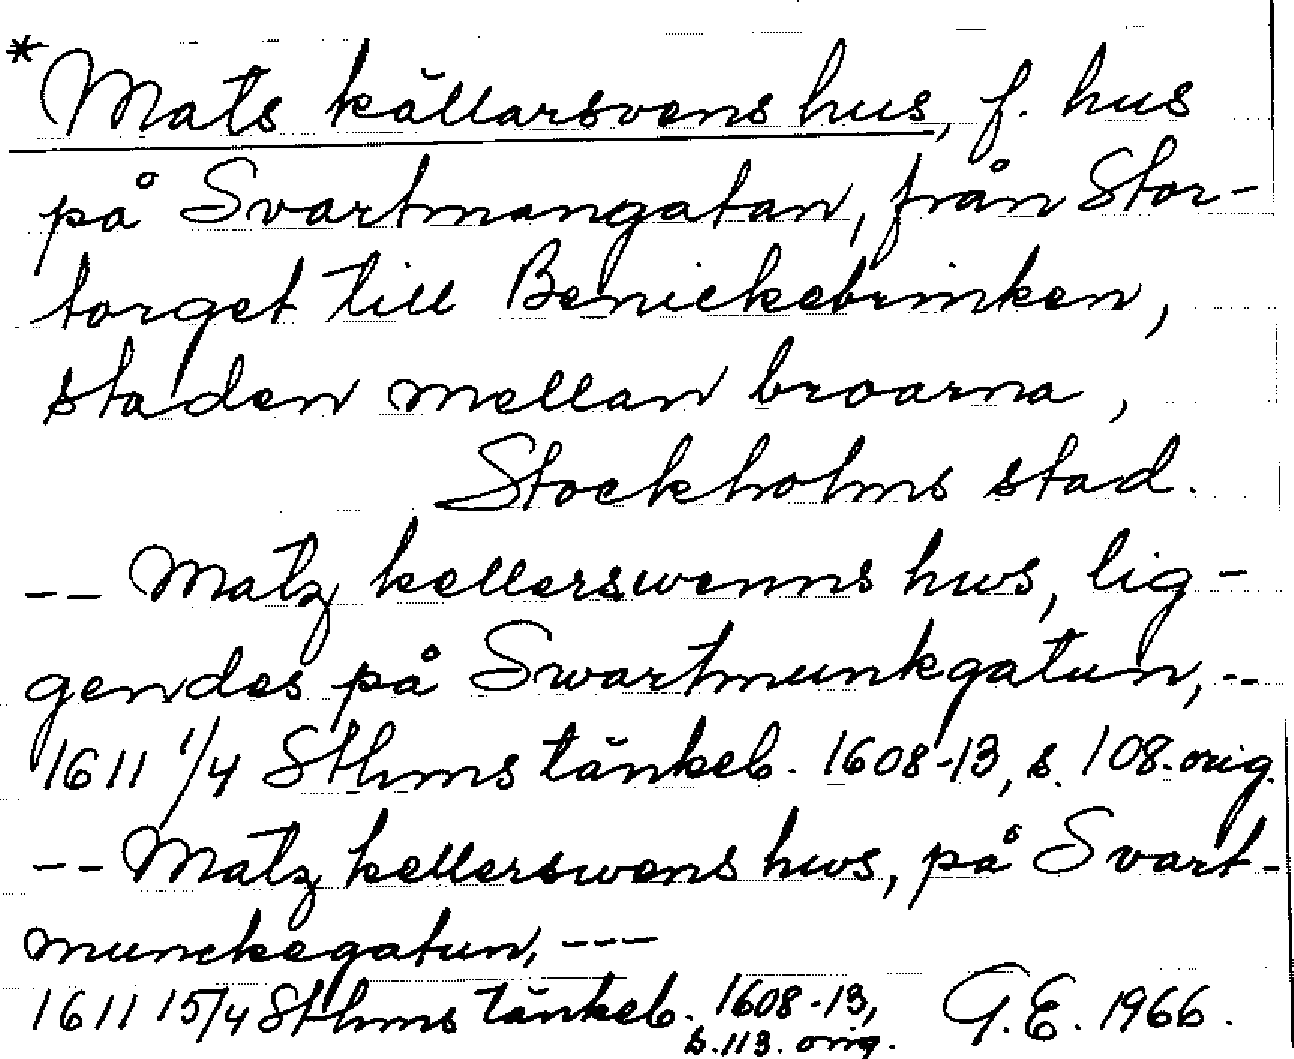 *Mats källarsvens hus, f. hus
på Svartmangatan, från Stor-
torget till Benickebrinken,
staden mellan broarna,
Stockholms stad.
-- Matz kellerswenns hws, lig-
gendes på Swartmunkgatun, --
1611 1/4 Sthms tänkeb. 1608-13, s. 108. orig.
-- Matz kellerswens hws, på Svart-
munckegatun, ---
1611 15/4 Sthms tänkeb. 1608-13,
s. 113. orig. G.E. 1966.